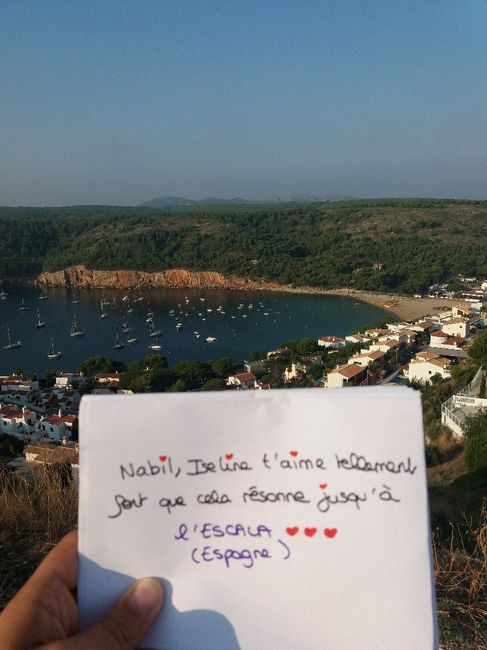 Nabil, Iseline t'aime tellement
fort que cela résonne jusqu'à
l'ESCALA ♥♥♥
(Espagne)